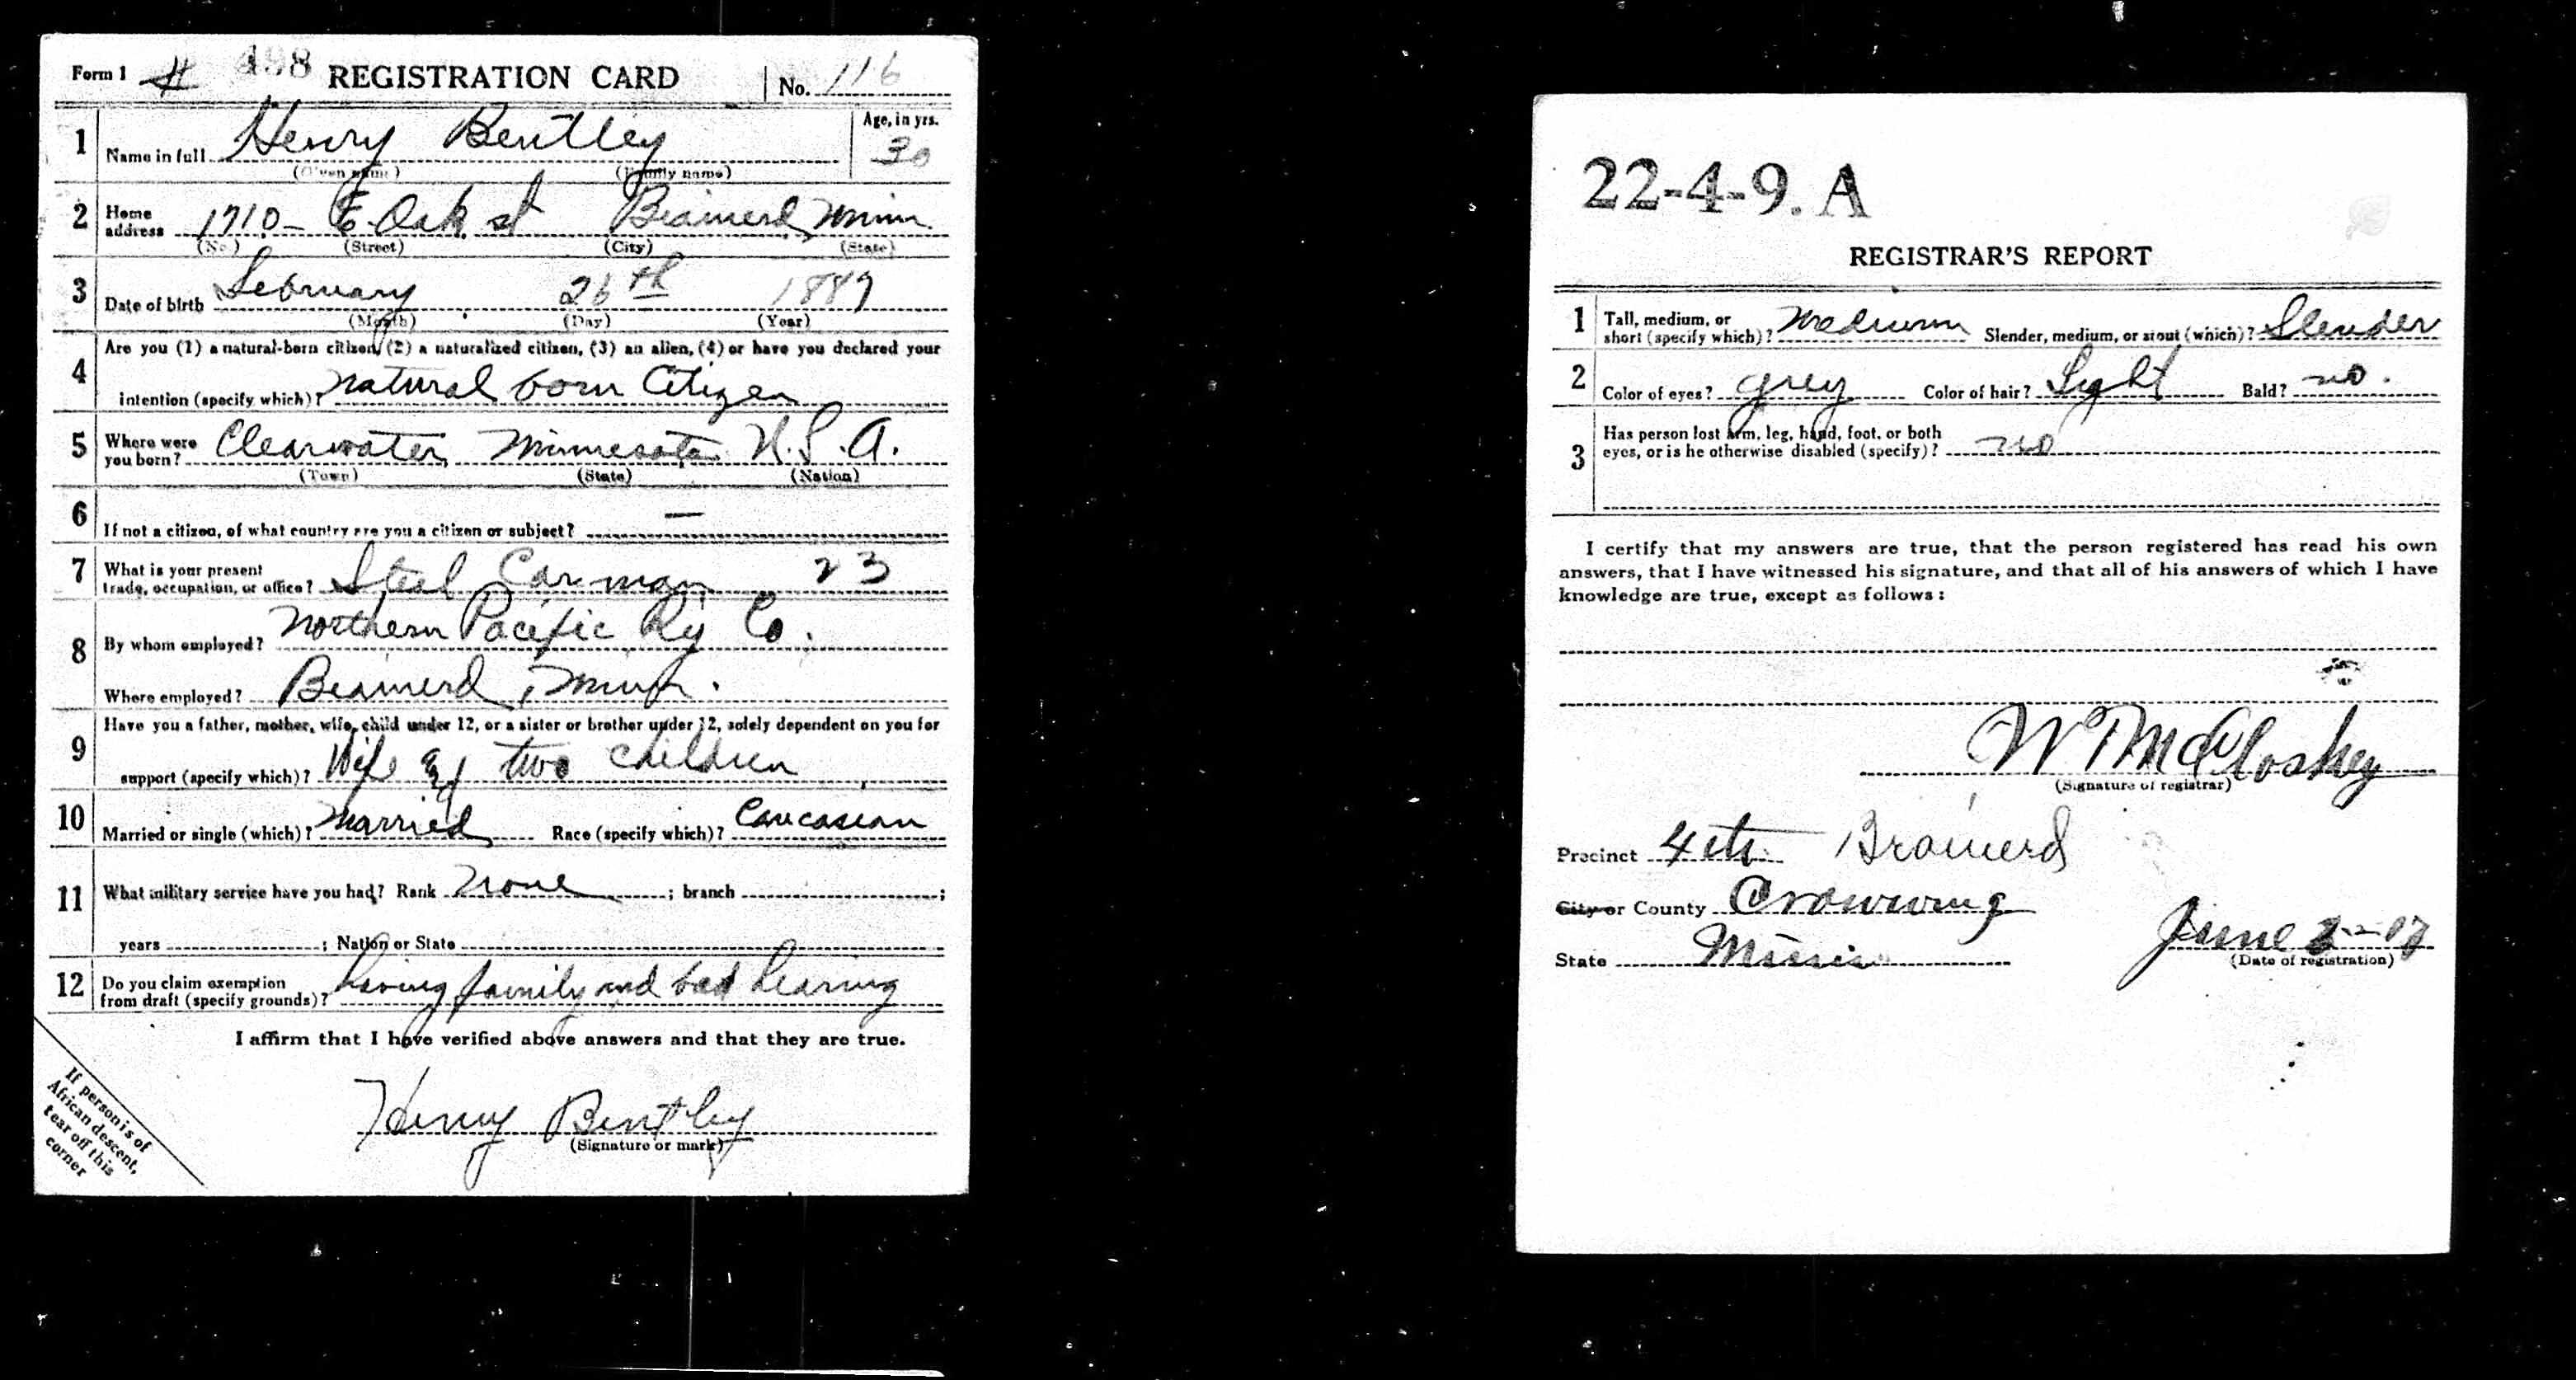 Form 1 # 498 REGISTRATION CARD No. 116
1 Name in full Henry Bentley Age, in yrs. 30
(Given name) (Family name)
2 Home address 1710- E. Oak st Brainerd Minn
(No.) (Street) (City) (State)
3 Date of birth February 26th 1887
(Month) (Day) (Year)
4 Are you (1) a natural-born citizen, (2) a naturalized citizen, (3) an alien, (4) or have you declared your
intention (specify which)? natural born Citizen
5 Where were you born? Clearwater Minnesota U.S.A.
(Town) (State) (Nation)
6 If not a citizen, of what country are you a citizen or subject? —
7 What is your present trade, occupation, or office? Steel Carman 23
8 By whom employed? Northern Pacific Ry Co.
Where employed? Brainerd, Minn.
9 Have you a father, mother, wife, child under 12, or a sister or brother under 12, solely dependent on you for
support (specify which)? Wife & two children
10 Married or single (which)? Married Race (specify which)? Caucasian
11 What military service have you had? Rank None ; branch ;
years ; Nation or State
12 Do you claim exemption from draft (specify grounds)? having family and bad hearing
I affirm that I have verified above answers and that they are true.
Henry Bentley
(Signature or mark)
If person is of
African descent,
tear off this
corner
22-4-9. A
REGISTRAR'S REPORT
1 Tall, medium, or short (specify which)? Medium Slender, medium, or stout (which)? Slender
2 Color of eyes? grey Color of hair? Light Bald? no.
3 Has person lost arm, leg, hand, foot, or both
eyes, or is he otherwise disabled (specify)? no
I certify that my answers are true, that the person registered has read his own
answers, that I have witnessed his signature, and that all of his answers of which I have
knowledge are true, except as follows:
W T McCloskey
(Signature of registrar)
Precinct 4th Brainerd
City or County Crow wing
State Minn June
(Date of registration)